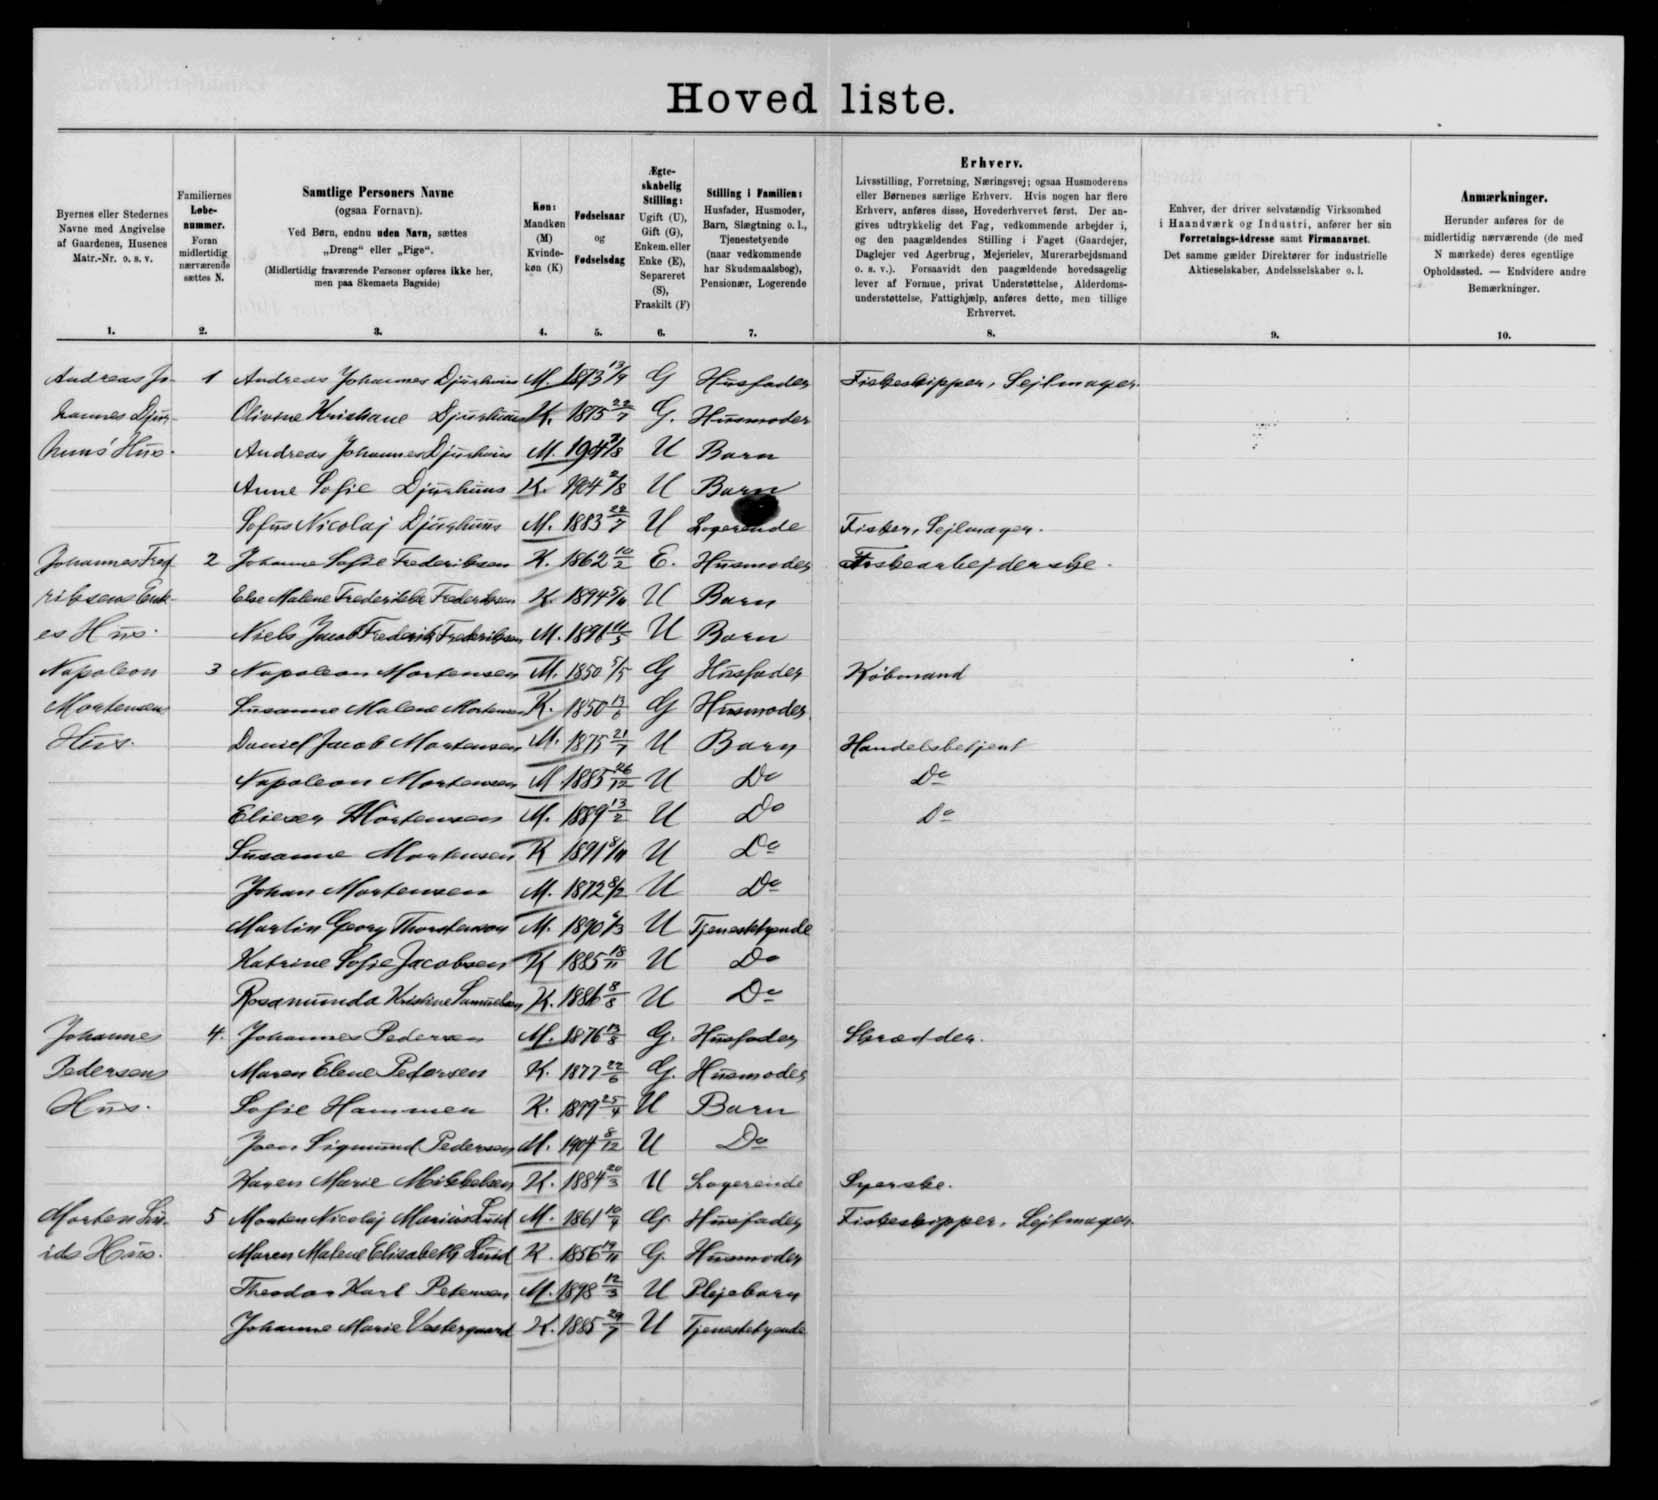 Hoved liste.
Byernes eller Stedernes Navne med Angivelse af Gaardenes, Husenes Matr.-Nr. o. s. v.
Familiernes Løbenummer. Foran midlertidig nærværende sættes N.
Samtlige Personers Navne
(ogsaa Fornavn).
Ved Børn, endnu uden Navn, sættes
„Dreng“ eller „Pige“.
(Midlertidig fraværende Personer opføres ikke her, men paa Skemaets Bagside)
Køn: Mandkøn (M) Kvindekøn (K)
Fødselsaar og Fødselsdag
Ægteskabelig Stilling: Ugift (U), Gift (G), Enkem. eller Enke (E), Separeret (S), Fraskilt (F)
Stilling i Familien: Husfader, Husmoder, Barn, Slægtning o. l., Tjenestetyende (naar vedkommende har Skudsmaalsbog), Pensionær, Logerende
Erhverv.
Livsstilling, Forretning, Næringsvej; ogsaa Husmoderens
eller Børnenes særlige Erhverv. Hvis nogen har flere
Erhverv, anføres disse, Hovederhvervet først. Der an-
gives udtrykkelig det Fag, vedkommende arbejder i,
og den paagældendes Stilling i Faget (Gaardejer,
Daglejer ved Agerbrug, Mejerielev, Murerarbejdsmand
o. s. v.). Forsaavidt den paagældende hovedsagelig
lever af Formue, privat Understøttelse, Alderdoms-
understøttelse, Fattighjælp, anføres dette, men tillige
Erhvervet.
Enhver, der driver selvstændig Virksomhed
i Haandværk og Industri, anfører her sin
Forretnings-Adresse samt Firmanavnet.
Det samme gælder Direktører for industrielle
Aktieselskaber, Andelsselskaber o. l.
Anmærkninger.
Herunder anføres for de
midlertidig nærværende (de med
N mærkede) deres egentlige
Opholdssted. — Endvidere andre
Bemærkninger.
1. 2. 3. 4. 5. 6. 7. 8. 9. 10.
Andreas Jo- 1 Andreas Johannes Djurhuus M. 1873 13/9 G Husfader Fiskeskipper, Sejlmager.
hannes Djur- Olivine Kristiane Djurhuus K. 1875 22/7 G. Husmoder
huus' Hus. Andreas Johannes Djurhuus M. U Barn
Anne Sofie Djurhuus K. 1904 2/8 U Barn
Sofus Nicolaj Djurhuus M. 1883 22/7 U Logerende Fisker, Sejlmager.
Johannes Fred 2 Johanne Sofie Frederiksen K. 1862 10/2 E. Husmoder Fiskearbejderske.
riksens Enk- Else Malene Frederikke Frederiksen K 1894 U Barn
es Hus. Niels Jacob Frederik Frederiksen M. U Barn
Napoleon 3 Napoleon Mortensen M. 1850 5/5 G Husfader Købmand
Mortensens Susanne Malene Mortensen K. 1850 13/6 G Husmoder
Hus. Daniel Jacob Mortensen M. 1875 21/7 U Barn Handelsbetjent
Napoleon Mortensen M 1885 26/12 U Do Do
Elieser Mortensen M. 1889 13/2 U Do Do
Susanne Mortensen K 1891 U Do
Johan Mortensen M. 1872 8/2 U Do
Martin Georg Thorstensen M. 1890 U Tjenestetyende
Katrine Sofie Jacobsen K 1885 18/11 U Do
Rosamunda Kristine Samuelsen K. 1886 8/8 U Do
Johannes 4. Johannes Pedersen M. 1876 13/8 G. Husfader Skrædder.
Pedersens Maren Elene Pedersen K. 1877 22/6 G. Husmoder
Hus. Sofie Hammer K. 1899 25/4 U Barn
Joen Sigmund Pedersen M. 1904 8/12 U Do
Karen Marie Mikkelsen K. 1884 20/3 U Logerende Syerske.
Morten Lu- 5 Morten Nicolaj Marius Luid M. 1861 G. Husfader Fiskeskipper, Sejlmager.
ids Hus. Maren Malene Elisabeth Luid K. 1856 G. Husmoder
Theodor Karl Petersen M. 1898 12/3 U Plejebarn
Johanne Marie Vestergaard K. 1885 29/7 U Tjenestetyende